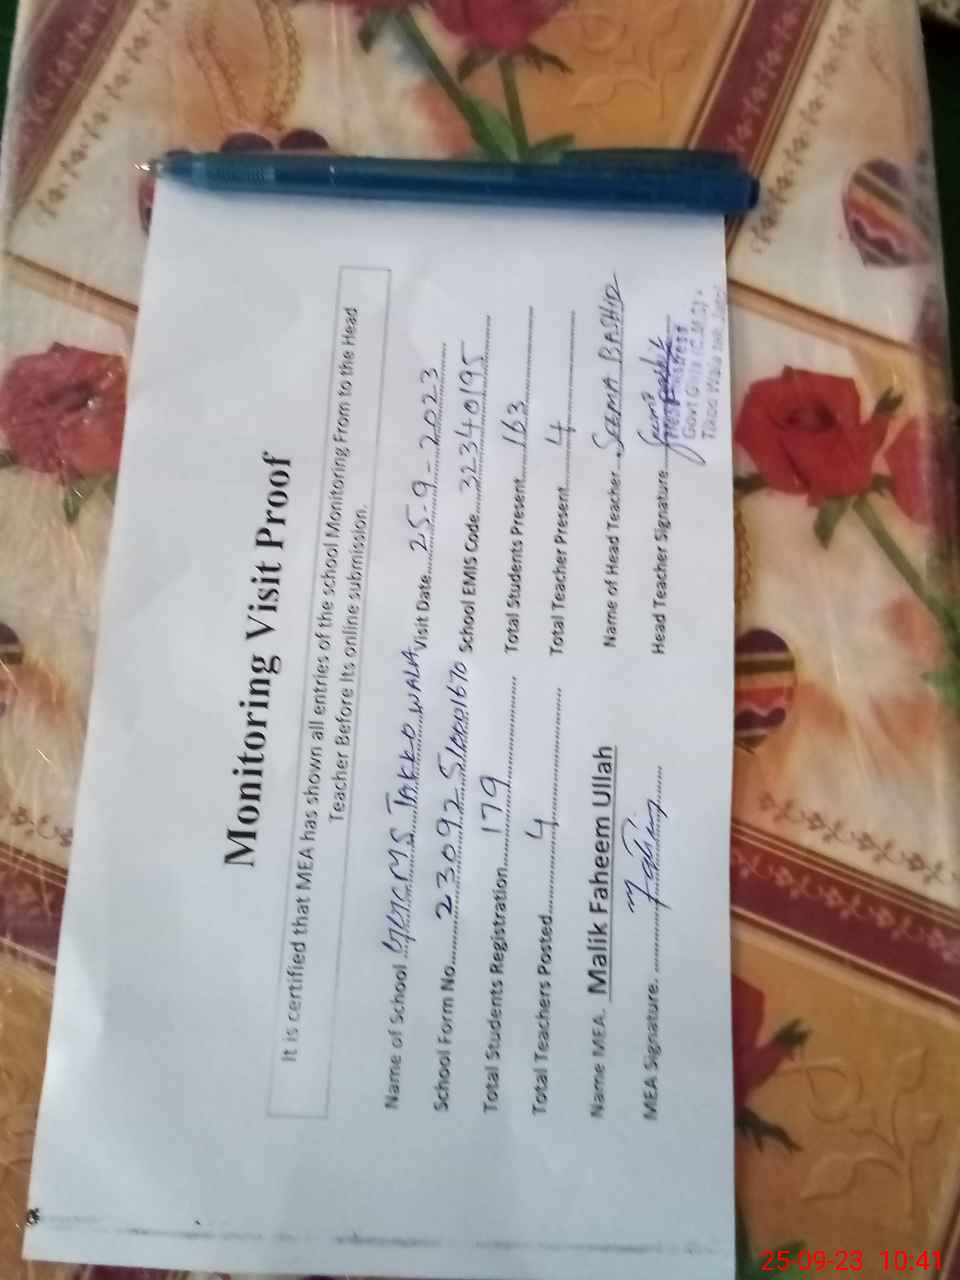 Monitoring Visit Proof
It is certified that MEA has shown all entries of the school Monitoring From to the Head
Teacher Before Its online submission.
Name of School GGCMS TAKKO WALA Visit Date 25-9-2023
School Form No. 23092 School EMIS Code 32340195
Total Students Registration 179 Total Students Present 163
Total Teachers Posted 4 Total Teacher Present 4
Name MEA. Malik Faheem Ullah Name of Head Teacher SEEMA BASHIR
MEA Signature. Head Teacher Signature
Headmistress
Govt Girls (C.M.S)
25-09-23 10:41